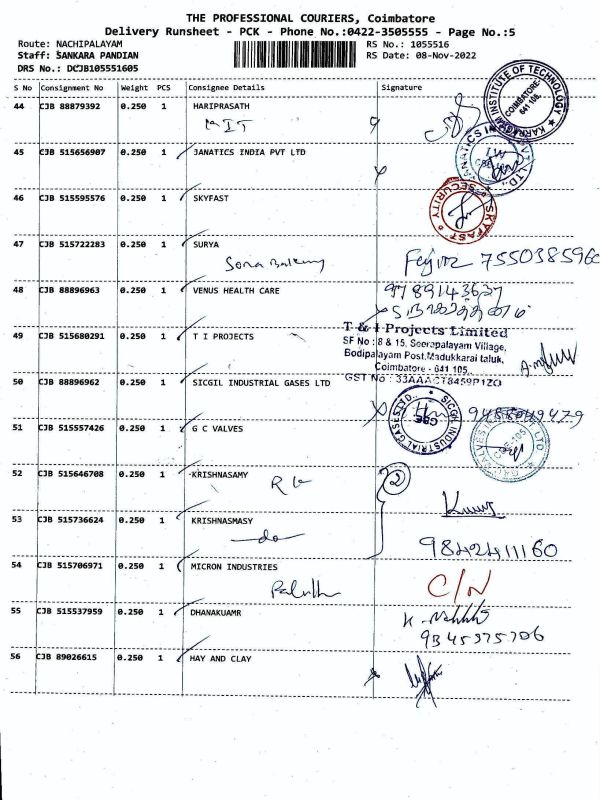 THE PROFESSIONAL COURIERS, Coimbatore
Delivery Runsheet - PCK - Phone No.:0422-3505555 - Page No.:5
Route: NACHIPALAYAM RS No.: 1055516
Staff: SANKARA PANDIAN RS Date: 08-Nov-2022
DRS No.: DCJB105551605
S No Consignment No Weight PCS Consignee Details Signature
44 CJB 88879392 0.250 1 HARIPRASATH
KIT
INSTITUTE OF TECHNOLOGY
COIMBATORE-
641 105.
45 CJB 515656907 0.250 1 JANATICS INDIA PVT LTD
46 CJB 515595576 0.250 1 SKYFAST
SECURITY SKYFAST
47 CJB 515722283 0.250 1 SURYA
Sona Bakery 7550385960
48 CJB 88896963 0.250 1 VENUS HEALTH CARE 9789143637
49 CJB 515680291 1 T I PROJECTS
0.250
T & I Projects Limited
SF No : 8 & 15, Seerapalayam Village,
Bodipalayam Post, Madukkarai taluk,
Coimbatore - 641 105.
GST No : 33AAACT8459P1ZO
50 CJB 88896962 0.250 1 SICGIL INDUSTRIAL GASES LTD
SICGIL INDUSTRIAL GASES LTD.,
CBE
51 CJB 515557426 0.250 1 G C VALVES
52 CJB 515646708 0.250 1 KRISHNASAMY
2
53 CJB 515736624 0.250 1 KRISHNASMASY
do 9842411160
54 CJB 515706971 0.250 1 MICRON INDUSTRIES
C/N
55 CJB 515537959 0.250 1 DHANAKUAMR
9345375706
56 CJB 89026615 0.250 1 HAY AND CLAY